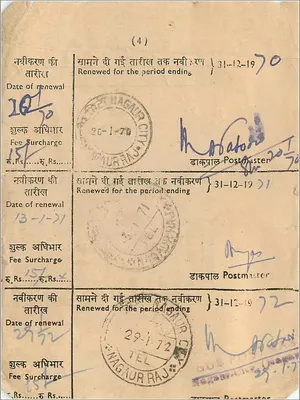 (4)
नवीकरण की सामने दी गई तारीख तक नवीकरण } 31-12-1970
तारीख Renewed for the period ending
Date of renewal
NAGAUR CITY
20-1-70
NAGAUR RAJ.
शुल्क अधिभार
Fee Surcharge
15/-
रु.Rs. रु.Rs.
डाकपाल Postmaster
20/1/70
नवीकरण की सामने दी गई तारीख तक नवीकरण } 31-12-1971
तारीख Renewed for the period ending
Date of renewal
13-1-71
शुल्क अधिभार
Fee Surcharge
15/-
रु.Rs. रु.Rs.
डाकपाल Postmaster
नवीकरण की सामने दी गई तारीख तक नवीकरण } 31-12-1972
तारीख Renewed for the period ending
Date of renewal
NAGAUR CITY
29-1-72
TEL
NAGAUR RAJ.
शुल्क अधिभार
Fee Surcharge